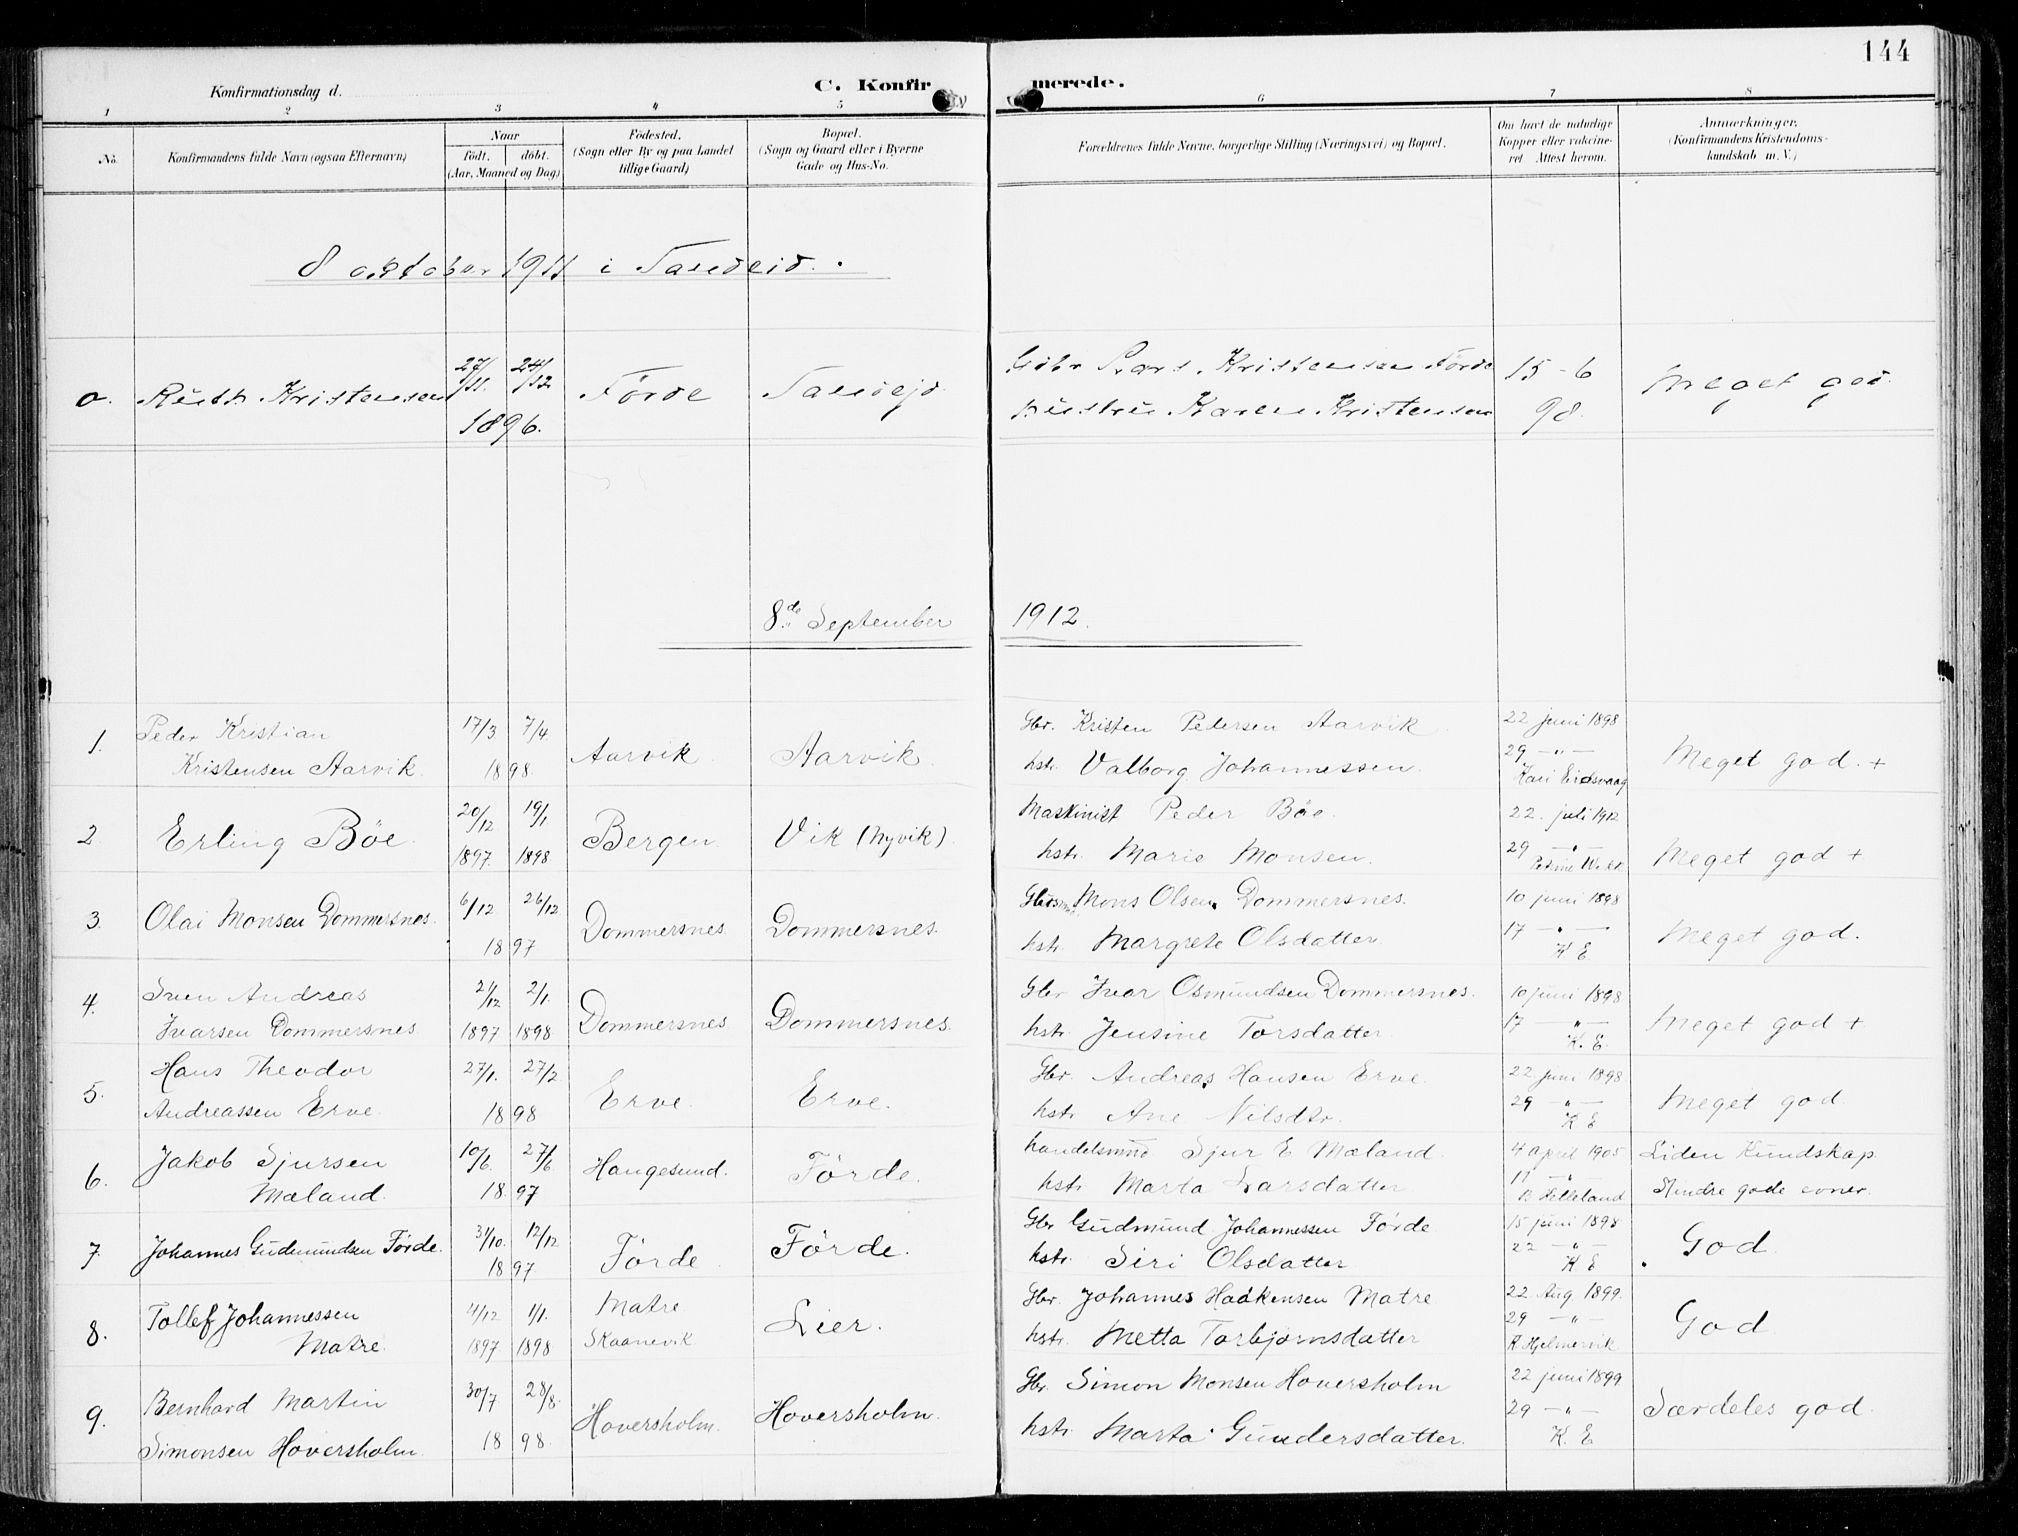 144
Konfirmationsdag d.
C. Konfirmerede.
1 2 3 4 5 6 7 8
No.
Konfirmandens fulde Navn (ogsaa Efternavn)
Naar
født. døbt.
(Aar, Maaned og Dag)
Fødested.
(Sogn eller By og paa Landet
tillige Gaard)
Bopæl.
(Sogn og Gaard eller i Byerne
Gade og Hus-No.
Forældrenes fulde Navne, borgerlige Stilling (Næringsvei) og Bopæl.
Om havt de naturlige
Kopper eller vakcine-
ret Attest herom.
Anmærkninger.
(Konfirmandens Kristendoms-
kundskab m. V.)
8 oktober 1911 i Sandeid.
0. Ruth Kristensen 27/11. 24/12 1896. Førde Sandejd
Gbr Lars Kristensen Førde
hustru Karen Kristensen
15-6
98.
Meget god.
8de September 1912.
1. Peder Kristian
Kristensen Aarvik.
17/3 7/4 1898.
Aarvik. Aarvik.
Gbr. Kristen Pedersen Aarvik.
hstr. Valborg Johannessen.
22 juni 1898
29 — " —
Kari Eidsvaag
Meget god. +
2. Erling Böe.
20/12 1897. 19/1 1898
Bergen. Vik (Nyvik)
Maskinist Peder Böe.
hstr. Marie Monsen.
22. juli 1912
29 — " —
Meget god +
3. Olai Monsen Dommersnes.
6/12 26/12 1897
Dommersnes. Dommersnes.
Mons Olsen Dommersnes.
hstr. Margrete Olsdatter
10 juni 1898
17 — " —
K E
Meget god.
4. Sven Andreas
Ivarsen Dommersnes
21/12 1897 2/1. 1898
Dommersnes. Dommersnes.
Gbr Ivar Osmundsen Dommersnes.
hstr. Jensine Torsdatter.
10 juni 1898
17 — " —
K. E.
Meget god +
5. Hans Theodor
Andreassen Erve.
27/1. 27/2 1898
Erve. Erve.
Gbr. Andreas Hansen Erve.
hstr. Ane Nilsdtr.
22 juni 1898
29 — " —
K E
Meget god.
6. Jakob Sjursen
Mæland.
10/6. 27/6 1897
Haugesund. Förde.
handelsmnd Sjur E Mæland.
hstr. Marta Larsdatter
4 april 1905
11 — " —
B Helleland
Liden Kundskap.
Mindre gode evner.
7. Johannes Gudmundsen Förde.
31/10. 12/12 1897
Förde. Förde.
Gbr Gudmund Johannessen Förde
hstr. Siri Olsdatter
15 juni 1898
22 — " —
K E
God.
8. Tollef Johannessen
Matre.
4/12 1897 1/1. 1898
Matre
Skaanevik
Lier.
Gbr. Johannes Haakensen Matre
hstr. Metta Torbjørnsdatter
22 Aug 1899.
29 — " —
R. Hjelmervik
God
9. Bernhard Martin
Simonsen Hoversholm.
30/7 28/8. 1898.
Hoversholm. Hoversholm.
Gbr. Simon Monsen Hoversholm
hstr. Marta Gundersdatter.
22 juni 1899
29 — " —
K. E
Særdeles god.